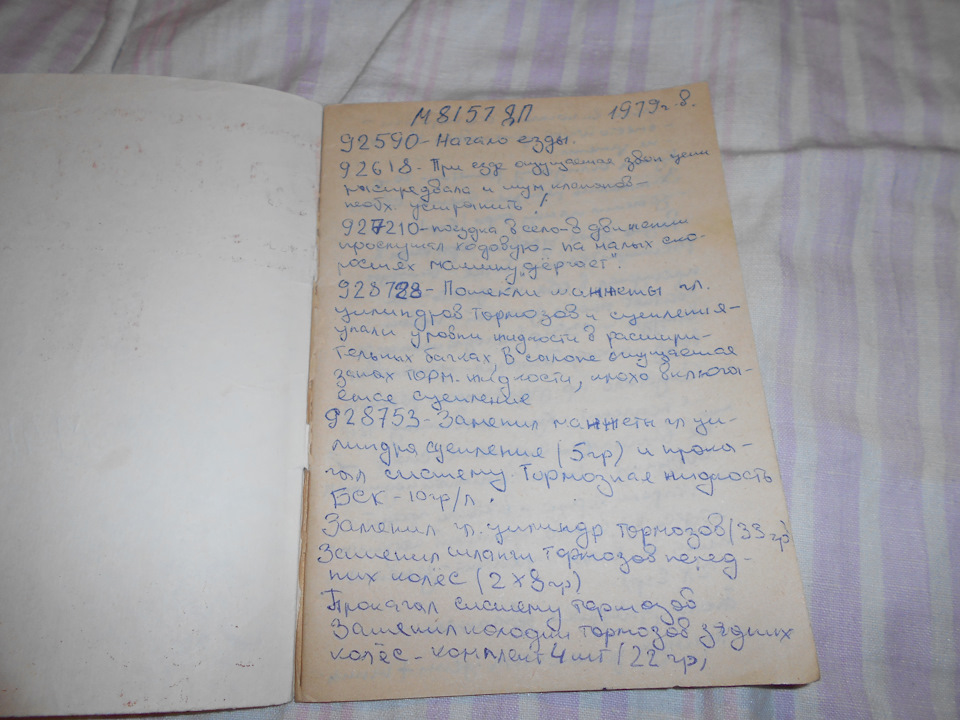 М8157ДП 1979г.в.
92590- Начало езды.
92618- При езде ощущается звон цепи
распредвала и шум клапанов-
необх. устранить!
927210- поездка в село- в движении
прослушал ходовую- на малых ско-
ростях машину "дёргает".
928728- Потекли манжеты гл.
цилиндров тормозов и сцепления-
упали уровни жидкости в расшири-
тельных бачках, В салоне ощущается
запах торм. жидкости, плохо включа-
ется сцепление
928753- Заменил манжеты гл ци-
линдра сцепления (5гр) и прока-
чал систему. Тормозная жидкость
БСК - 10гр/л.
Заменил гл. цилиндр тормозов (33 гр)
Заменил шланги тормозов перед-
них колёс (2х8гр)
Прокачал систему тормозов
Заменил колодки тормозов задних
колёс - комплект 4шт (22 гр,